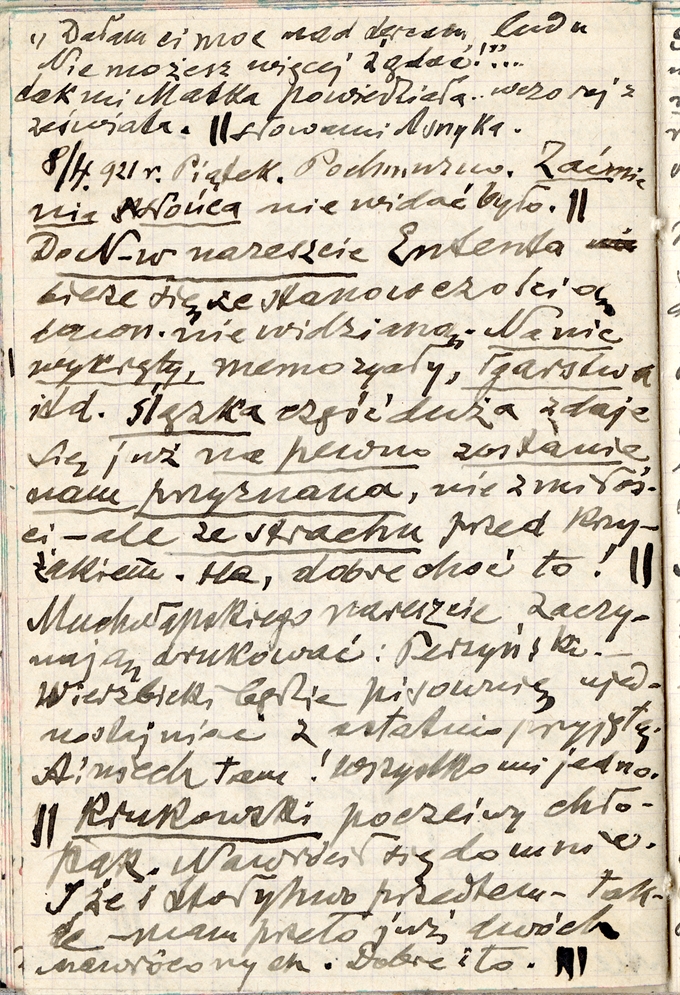 "Dałam ci moc nad sercem ludu
Nie możesz więcej żądać!"...
tak mi Matka powiedziała.. wczoraj z
zaświata. || słowami Asnyka.
8/4. 921 r. Piątek. Pochmurno. Zaćmie
nia słońca nie widać było. ||
Do N-w nareszcie Ententa
bierze się ze stanowczością
niewidzianą. Na nic
wykręty, memoryały, łgarstwa
itd. Śląska część duża zdaje
się już na pewno zostanie
nam przyznana, nie z miłoś-
ci – ale ze strachu przed Krzy-
żakiem. Ha, dobre choć to! ||
Muchołapskiego nareszcie zaczy-
nają drukować: Perzyński –
Wierzbicki będzie pisownię ujed-
nostajniać z ostatnio przyjętą.
A niech tam! Wszystko mi jedno.
|| Krukowski poczciwy chło-
pak. Nawrócił się do mnie.
I że i przedtem – tak-
że – mam przeto już dwóch
nawróconych. Dobre i to. |||